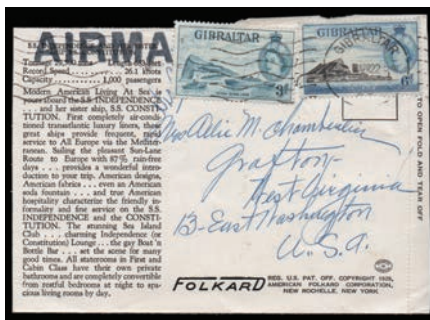 AIRMA
S.S. INDEPENDENCE
Record Speed 26.1 knots
Capacity 1,000 passengers
Modern American Living At Sea is
yours aboard the S.S. INDEPENDENCE
. . . and her sister ship, S.S. CONSTI-
TUTION. First completely air-condi-
tioned transatlantic luxury liners, these
great ships provide frequent, rapid
service to All Europe via the Mediter-
ranean. Sailing the pleasant Sun-Lane
Route to Europe with 87% rain-free
days . . . provides a wonderful intro-
duction to your trip. American designs,
American fabrics . . . even an American
soda fountain . . . and true American
hospitality characterize the friendly in-
formality and fine service on the S.S.
INDEPENDENCE and the CONSTI-
TUTION. The stunning Sea Island
Club . . . charming Independence (or
Constitution) Lounge . . . the gay Boat 'n
Bottle Bar . . . set the scene for many
good times. All staterooms in First and
Cabin Class have their own private
bathrooms and are completely convertible
from restful bedrooms at night to spa-
cious living rooms by day.
GIBRALTAR
3d
GIBRALTAR
6d
GIBRALTAR
Mrs M. Chamberlin
Grafton-
West Virginia
13-East Washington
U.S.A.
TO OPEN FOLD AND TEAR OFF
FOLKARD
REG. U.S. PAT. OFF. COPYRIGHT
AMERICAN FOLKARD CORPORATION
NEW ROCHELLE, NEW YORK